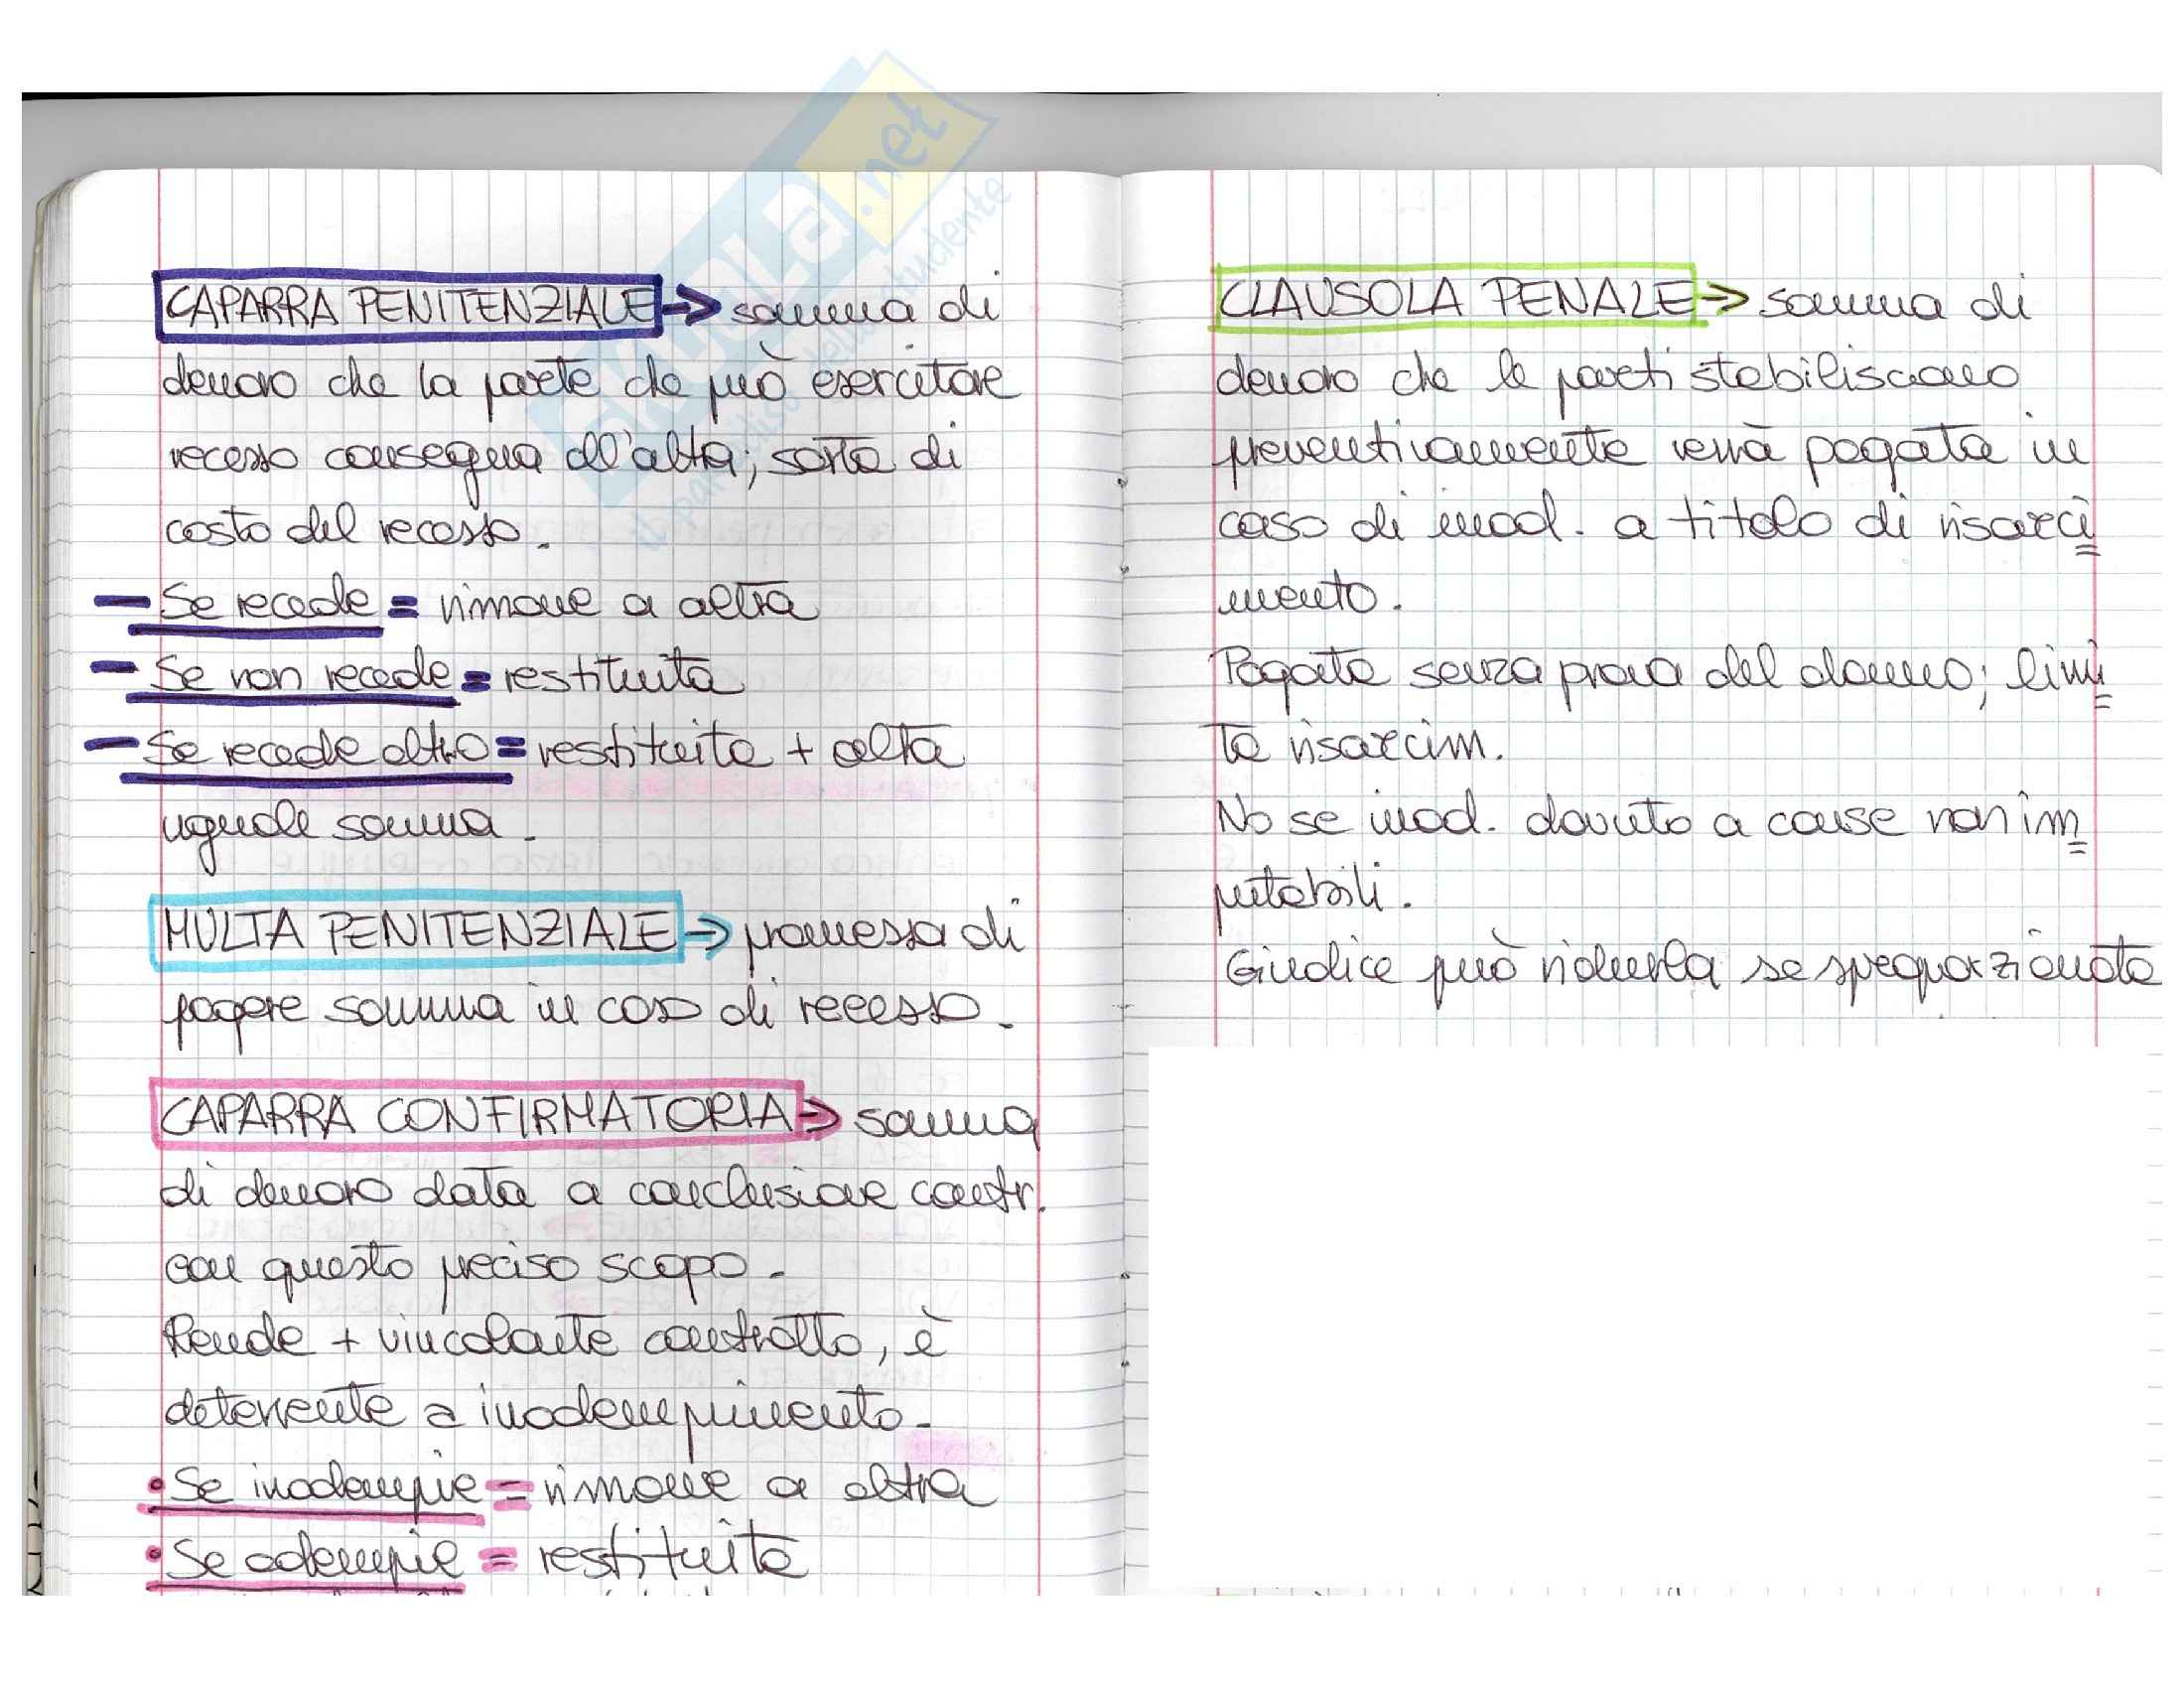 SKUOLA.net
il paradiso dello studente
CAPARRA PENITENZIALE → somma di
denaro che la parte che può esercitare
recesso consegna all'altra; sorta di
costo del recesso.
– Se recede = rimane a altra
– Se non recede = restituita
– Se recede altro = restituita + altra
uguale somma.
MULTA PENITENZIALE → promessa di
pagare somma in caso di recesso.
CAPARRA CONFIRMATORIA → somma
di denaro data a conclusione contr.
con questo preciso scopo.
Rende + vincolante contratto, è
deterrente a inadempimento.
• Se inadempie = rimane a altra
• Se adempie = restituita
CLAUSOLA PENALE → somma di
denaro che le parti stabiliscono
preventivamente verrà pagata in
caso di inad. a titolo di risarci
mento.
Pagata senza prova del danno; limi
ta risarcim.
No se inad. dovuto a cause non im
putabili.
Giudice può ridurla se sproporzionata